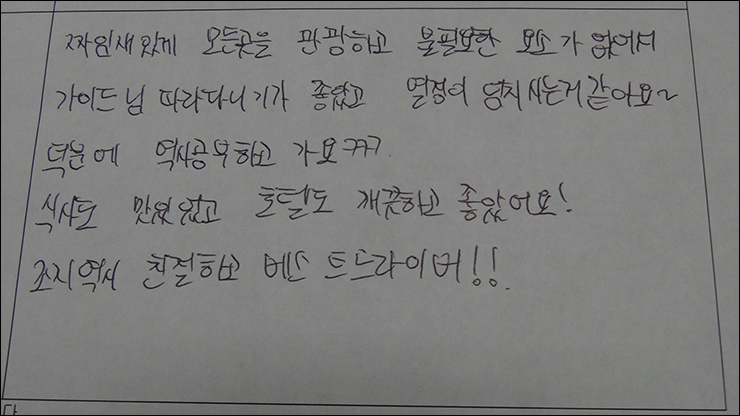 짜임새있게 모든곳을 관광하고 불필요한 요소가 없어서
가이드님 따라다니기가 좋았고 열정이 넘치시는거같아요~
덕분에 역사공부하고 가요ㅋㅋㅋ
식사도 맛있었고 호텔도 깨끗하고 좋았어요!
조지역시 친절하고 베스트드라이버!!